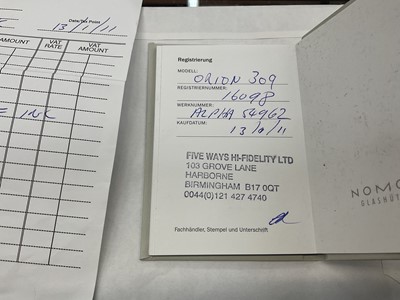 Date/Tax Point
13/1/11
AMOUNT
VAT RATE
VAT AMOUNT
INC
Registrierung
MODELL: ORION 309
REGISTRIERNUMMER: 16098
WERKNUMMER: ALPHA 54962
KAUFDATUM: 13/1/11
FIVE WAYS HI-FIDELITY LTD
103 GROVE LANE
HARBORNE
BIRMINGHAM B17 0QT
0044(0)121 427 4740
Fachhändler, Stempel und Unterschrift
NOMO
GLASHÜT